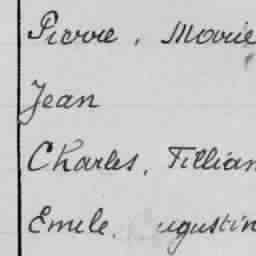 Pierre, Marie
Jean
Charles, Fillian
Emile. Augustin